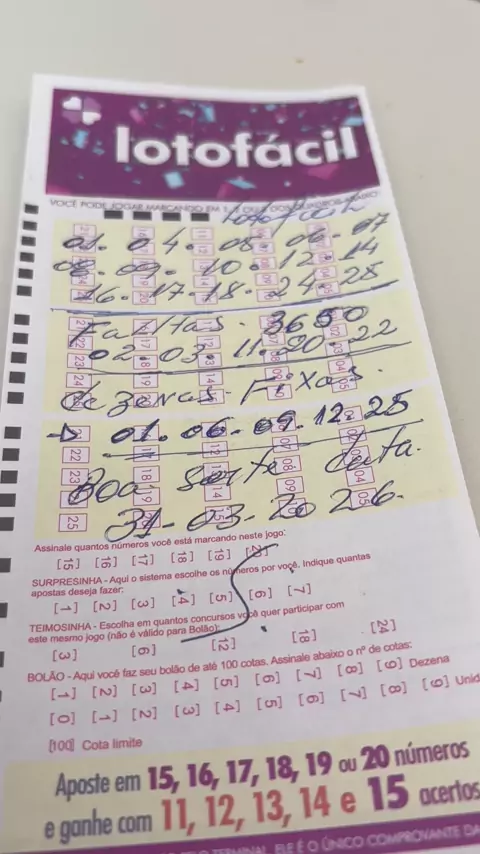 lotofácil
VOCÊ PODE JOGAR MARCANDO EM
Lotofácil
01. 04. 05. 06. 07
08. 09. 10. 12. 14
16. 17. 18. 24. 25
Faltas. 3650
02. 03. 11. 20. 22
dezenas Fixas.
→ 01. 06. 09. 12. 25
Boa Sorte data.
31-03-2026.
Assinale quantos números você está marcando neste jogo:
[15] [16] [17] [18] [19] [20]
SURPRESINHA - Aqui o sistema escolhe os números por você. Indique quantas
apostas deseja fazer:
[1] [2] [3] [4] [5] [6] [7]
TEIMOSINHA - Escolha em quantos concursos você quer participar com
este mesmo jogo (não é válido para Bolão):
[3] [6] [12] [18] [24]
BOLÃO - Aqui você faz seu bolão de até 100 cotas. Assinale abaixo o nº de cotas:
[1] [2] [3] [4] [5] [6] [7] [8] [9] Dezena
[0] [1] [2] [3] [4] [5] [6] [7] [8] [9] Unid
[100] Cota limite
Aposte em 15, 16, 17, 18, 19 ou 20 números
e ganhe com 11, 12, 13, 14 e 15 acertos
TERMINAL. ELE É O ÚNICO COMPROVANTE DA